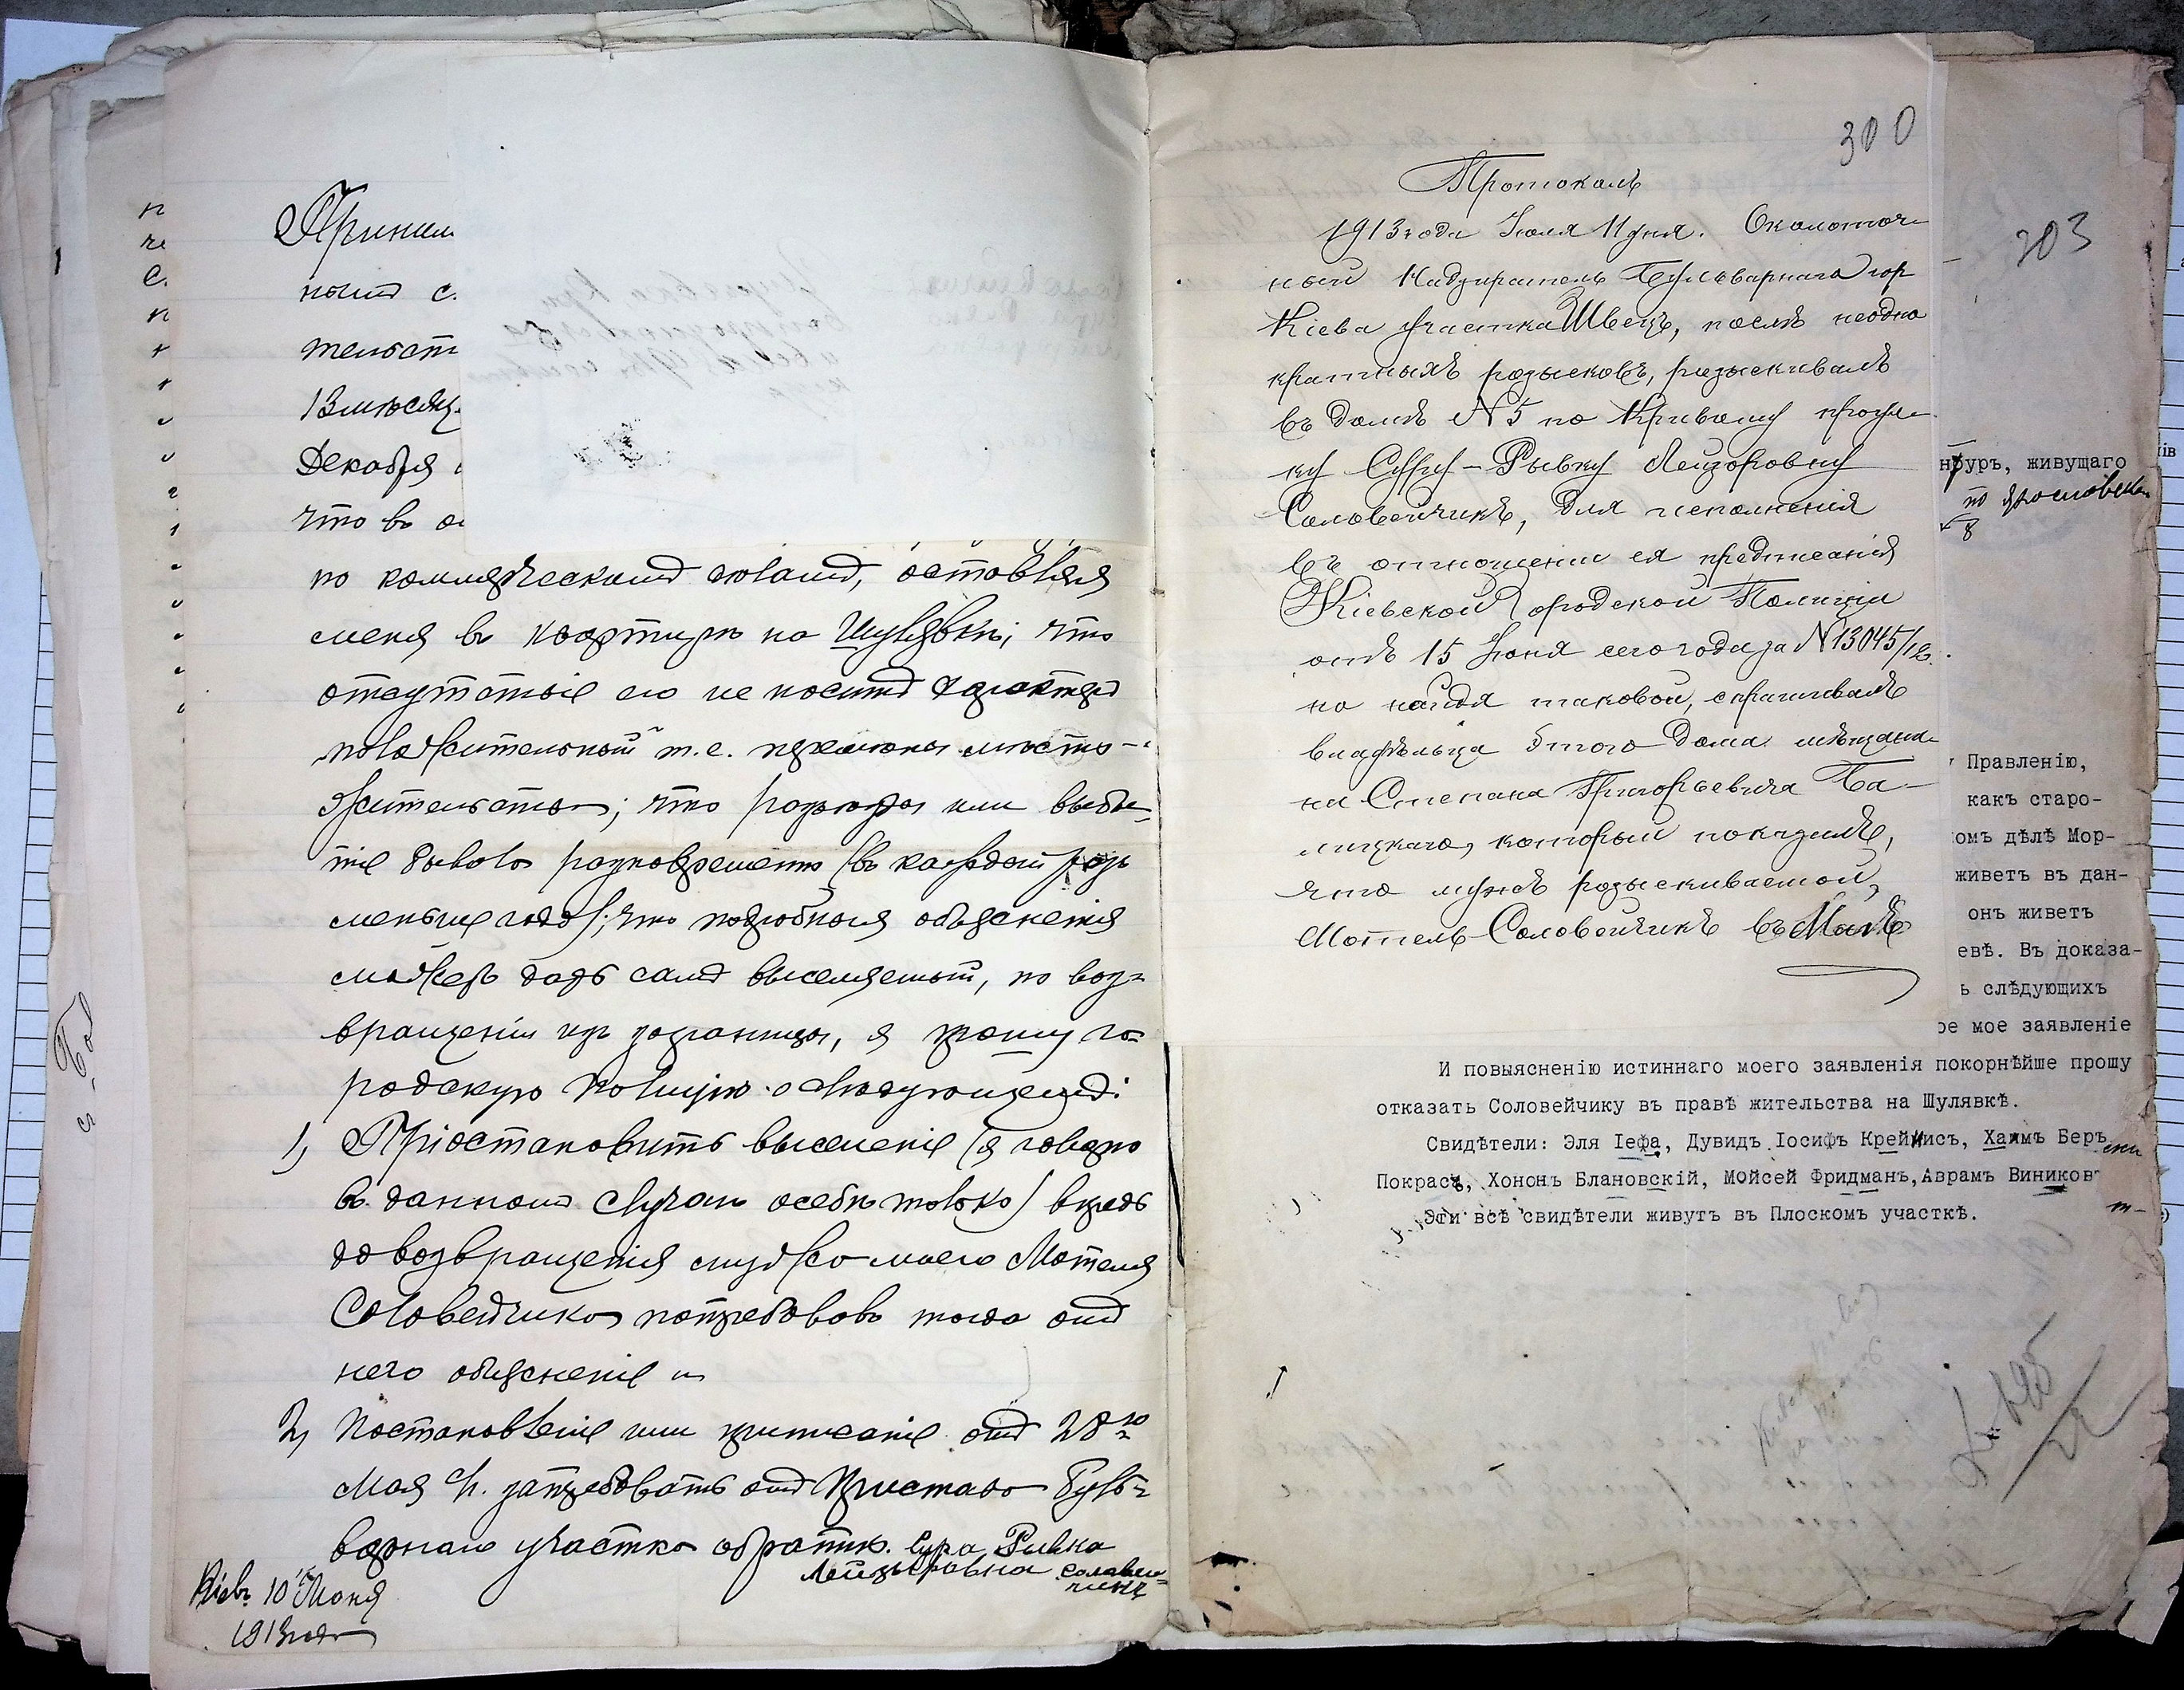 Приним
ной с.
тельст
13 мѣсяц.
Декабря
что въ
по коммерческимъ дѣламъ, оставляя
меня въ квартирѣ на Шулявкѣ; что
отсутствіе его не носитъ характеръ
положительный т.е. перемѣны мѣсто-
жительства; что разъѣзды или выбы-
тіе бывало разновременно (въ каждый разъ
меньше года); что подробныя объясненія
можетъ дать самъ выселяемый, по воз-
вращеніи изъ заграницы, я прошу го-
родскую полицію о слѣдующемъ:
1) Пріостановить выселеніе (я говорю
въ данномъ случаѣ о себѣ только) впредь
до возвращенія мужа моего Мотеля
Соловейчика потребовавъ тогда отъ
него объясненіе и
2) Постановленіе или предписаніе отъ 28го
Мая с/г. затребовать отъ Пристава Буль-
варнаго участка обратно. Сура Ривка
Лейзеровна Соловей-
чикъ
Кіевъ 10 Іюня
1913 года
300
Протоколъ
1913 года Іюля 11 дня. Околоточ-
ный Надзиратель Бульварнаго гор
Кіева участка Швецъ, послѣ неодно
кратныхъ розысковъ, розыскивалъ
въ домѣ N 5 по Кривому проул-
ку Суру-Рывку Лейзоровну
Соловейчикъ, для исполненія
въ отношеніи ея предписанія
Кіевской Городской Полиціи
отъ 15 Іюня сего года за N 13045/12.
но найдя таковой, спрашивалъ
владѣльца этого дома мѣщани-
на Степана Григорьевича Ба-
лицкаго, который показалъ,
что мужъ розыскиваемой,
Мотель Соловейчикъ въ Маѣ
203
нбуръ, живущаго
по Ярославск
8
Правленію,
какъ старо-
омъ дѣлѣ Мор-
живетъ въ дан-
онъ живетъ
евѣ. Въ доказа-
ь слѣдующихъ
ое мое заявленіе
И повыясненію истиннаго моего заявленія покорнѣйше прошу
отказать Соловейчику въ правѣ жительства на Шулявкѣ.
Свидѣтели: Эля Іефа, Дувидъ Іосифъ Крейнисъ, Хаимъ Беръ
Покрасъ, Хононъ Блановскій, Мойсей Фридманъ, Аврамъ Виников
Эти всѣ свидѣтели живутъ въ Плоскомъ участкѣ.